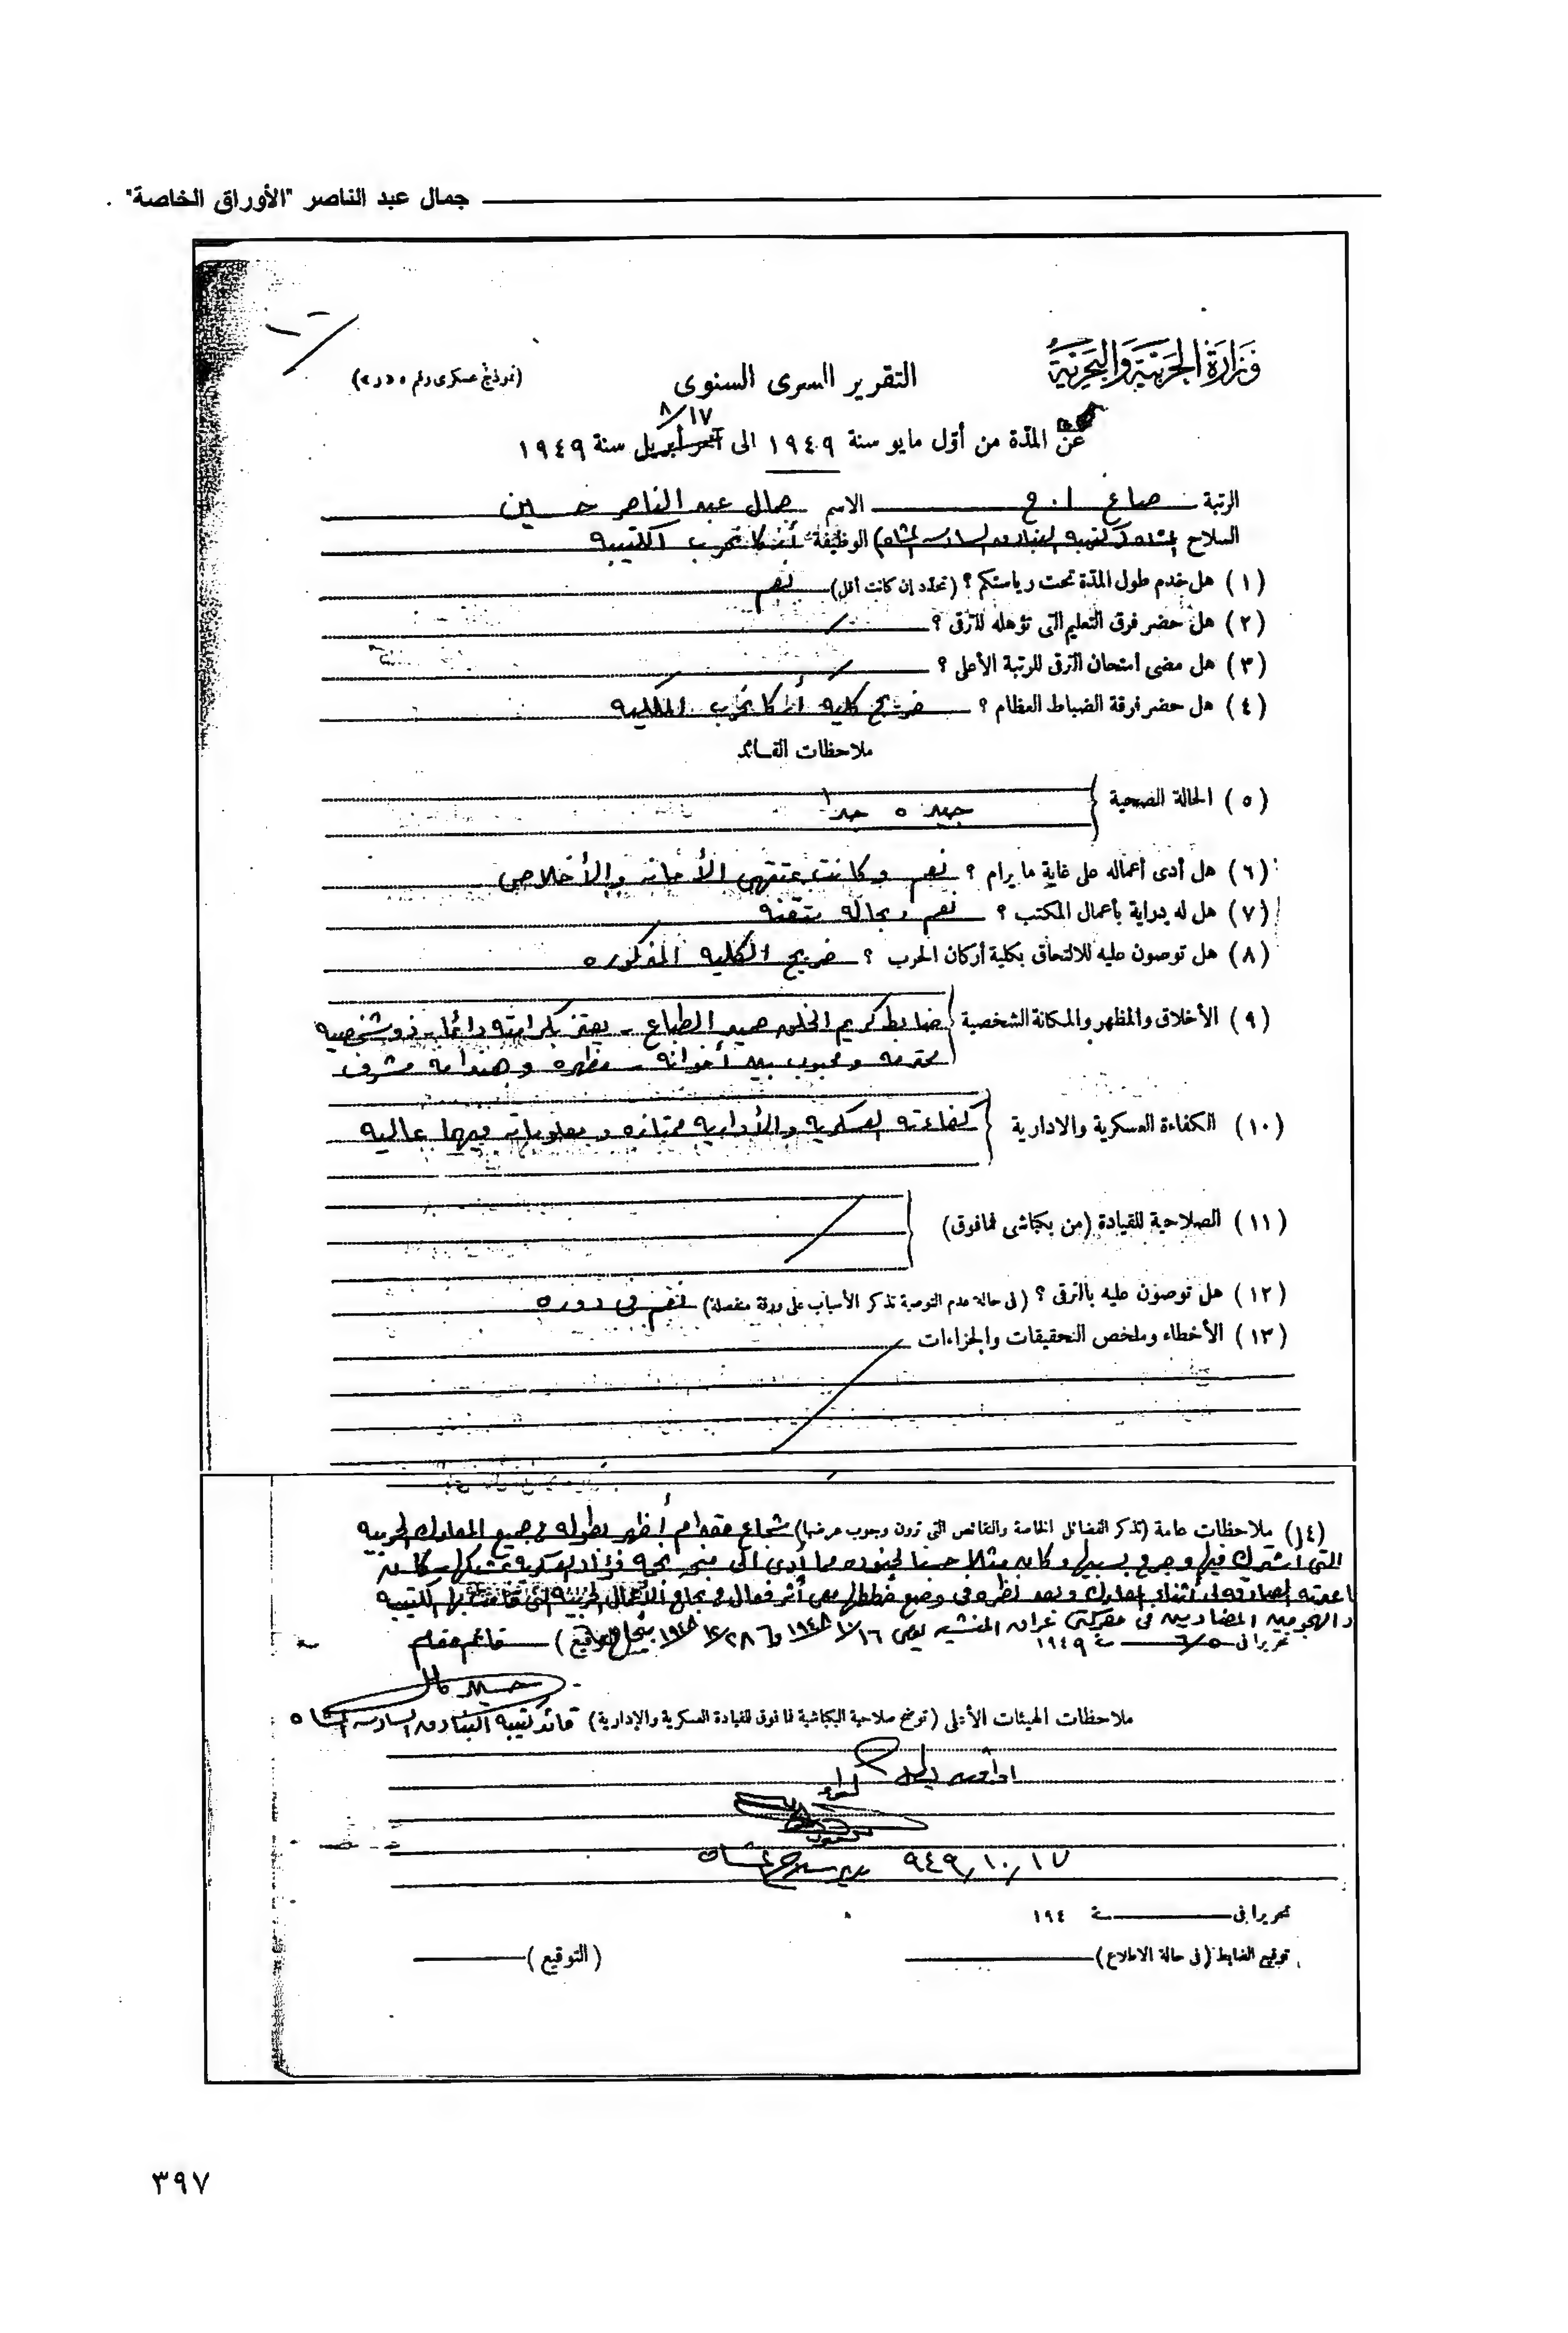 جمال عبد الناصر "الأوراق الخاصة"
وزارة الحربية والبحرية
التقرير السرى السنوى
(نموذج عسكرى رقم
٨/١٧
عن المدّة من أوّل مايو سنة ١٩٤٩ الى آخر أبريل سنة ١٩٤٩
الرتبة صاغ ا. ح الاسم جمال عبد الناصر حسين
السلاح المشاة (كتيبة البنادق السادسة المشاه) الوظيفة أركانحرب الكتيبة
(١) هل خدم طول المدّة تحت رياستكم؟ (تحدّد إن كانت أقل) نعم
(٢) هل حضر فرق التعليم التى تؤهله للترقى؟
(٣) هل مضى امتحان الترقى للرتبة الأعلى؟
(٤) هل حضر فرقة الضباط العظام؟ خريج كلية أركانحرب الملكيه
ملاحظات القائد
(٥) الحالة الصحية جيده جدا
(٦) هل أدى أعماله على غاية ما يرام؟ نعم وكانت بمنتهى الأمانه والأخلاص
(٧) هل له دراية بأعمال المكتب؟ نعم وبحالة متقنه
(٨) هل توصون عليه للالتحاق بكلية أركان الحرب؟ خريج الكليه المذكوره
(٩) الأخلاق والمظهر والمكانة الشخصية ضابط كريم الخلق حميد الطباع - يعتز بكرامته دائما - ذو شخصيه
محترمه ومحبوب بين أخوانه - مظهره وهندامه مشرف
(١٠) الكفاءة العسكرية والادارية كفاءته العسكريه والأداريه ممتازه ومعلوماته فيهما عاليه
(١١) الصلاحية للقيادة (من بكباشى فما فوق)
(١٢) هل توصون عليه بالترقى؟ (فى حالة عدم التوصية تذكر الأسباب على ورقة منفصلة) نعم فى دوره
(١٣) الأخطاء وملخص التحقيقات والجزاءات
(١٤) ملاحظات عامة (تذكر الفضائل الخاصة والنقائص التى ترون وجوب عرضها) شجاع مقدام أظهر بطوله فى جميع المعارك الحربيه
التى أشترك فيها وجرح بسببها وكان مثلا حسنا لجنوده مما أدى الى منحه نجمة فؤاد العسكرية
أثناء المعارك وبعد نظره فى وضع خططها أثر فعال فى نجاح الأعمال الحربيه التى قامت بها الكتيبه
والهجومين المضادين فى معركتى عراق المنشيه يومى ١٩٤٨/١٠/١٦ و ١٩٤٨/١٢/٢٨ بنجاح (التوقيع) قائمقام
تحريرا فى ٦/٥ سنة ١٩٤٩
ملاحظات الهيئات الأعلى (توضح صلاحية البكباشية فما فوق للقيادة العسكرية والإدارية) قائد كتيبة البنادق السادسة المشاه
لواء
٩٤٩/١٠/١٧ مدير سلاح المشاه
تحريرا فى سنة ١٩٤
توقيع الضابط (فى حالة الاطلاع) (التوقيع)
٣٩٧